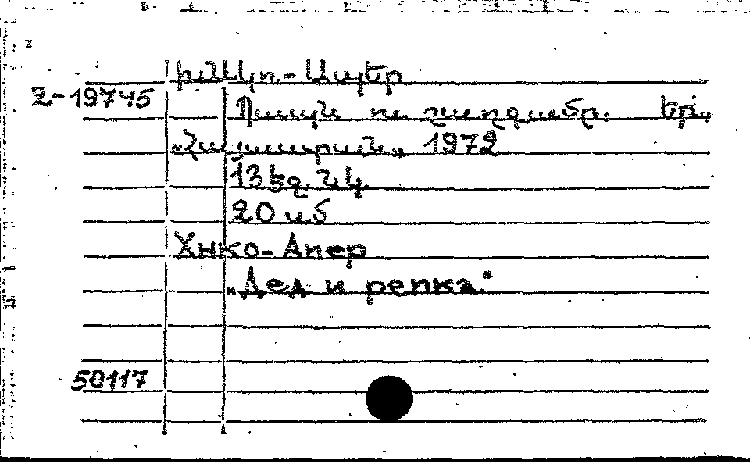 Խնկո-Ապեր
Հ-19745
Պապն ու շաղգամը. Եր.,
„Հայաստան„ 1972
13 եջ նկ.
20 սմ
Хнко-Апер
„Дед и репка."
50117